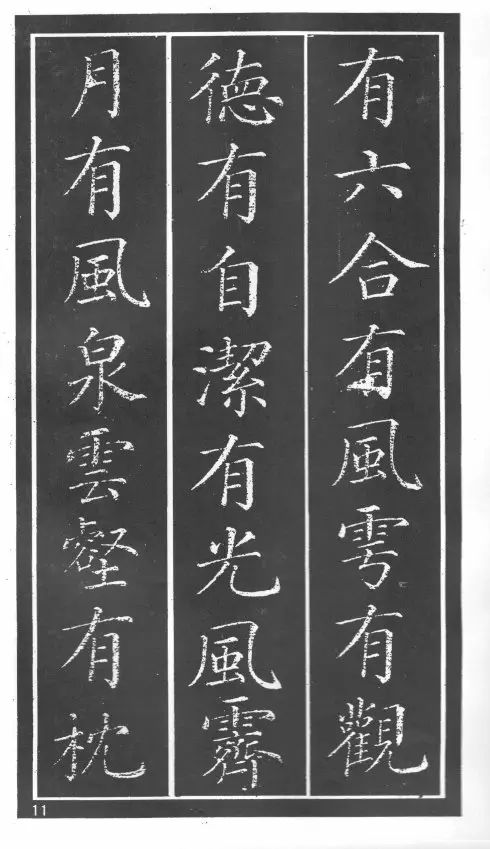 有六合有風雩有觀
德有自潔有光風霽
月有風泉雲壑有枕
11